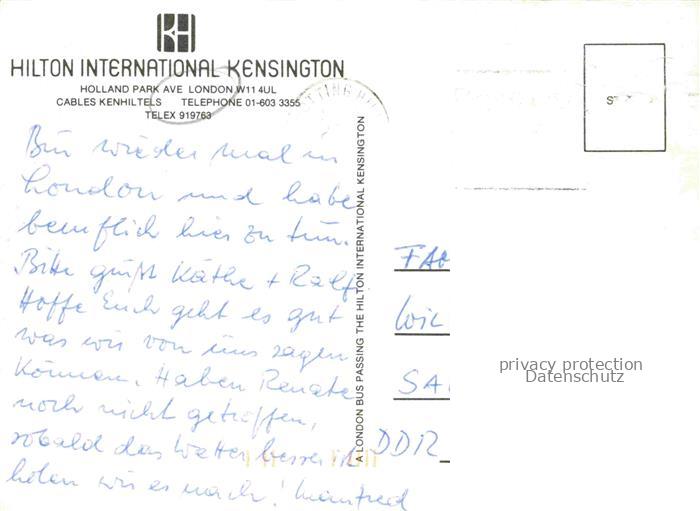 HILTON INTERNATIONAL KENSINGTON
HOLLAND PARK AVE LONDON W11 4UL
CABLES KENHILTELS TELEPHONE 01-603 3355
TELEX 919763
Bin wieder mal in
London und habe
beruflich hier zu tun.
Bitte grüßt Käthe + Ralf
Hoffe Euch geht es gut
was wir von uns sagen
können. Haben Renate
noch nicht getroffen,
sobald das Wetter besser ist
holen wir es nach! Manfred
A LONDON BUS PASSING THE HILTON INTERNATIONAL KENSINGTON
ST
FA
WIL
SA
DDR
privacy protection
Datenschutz